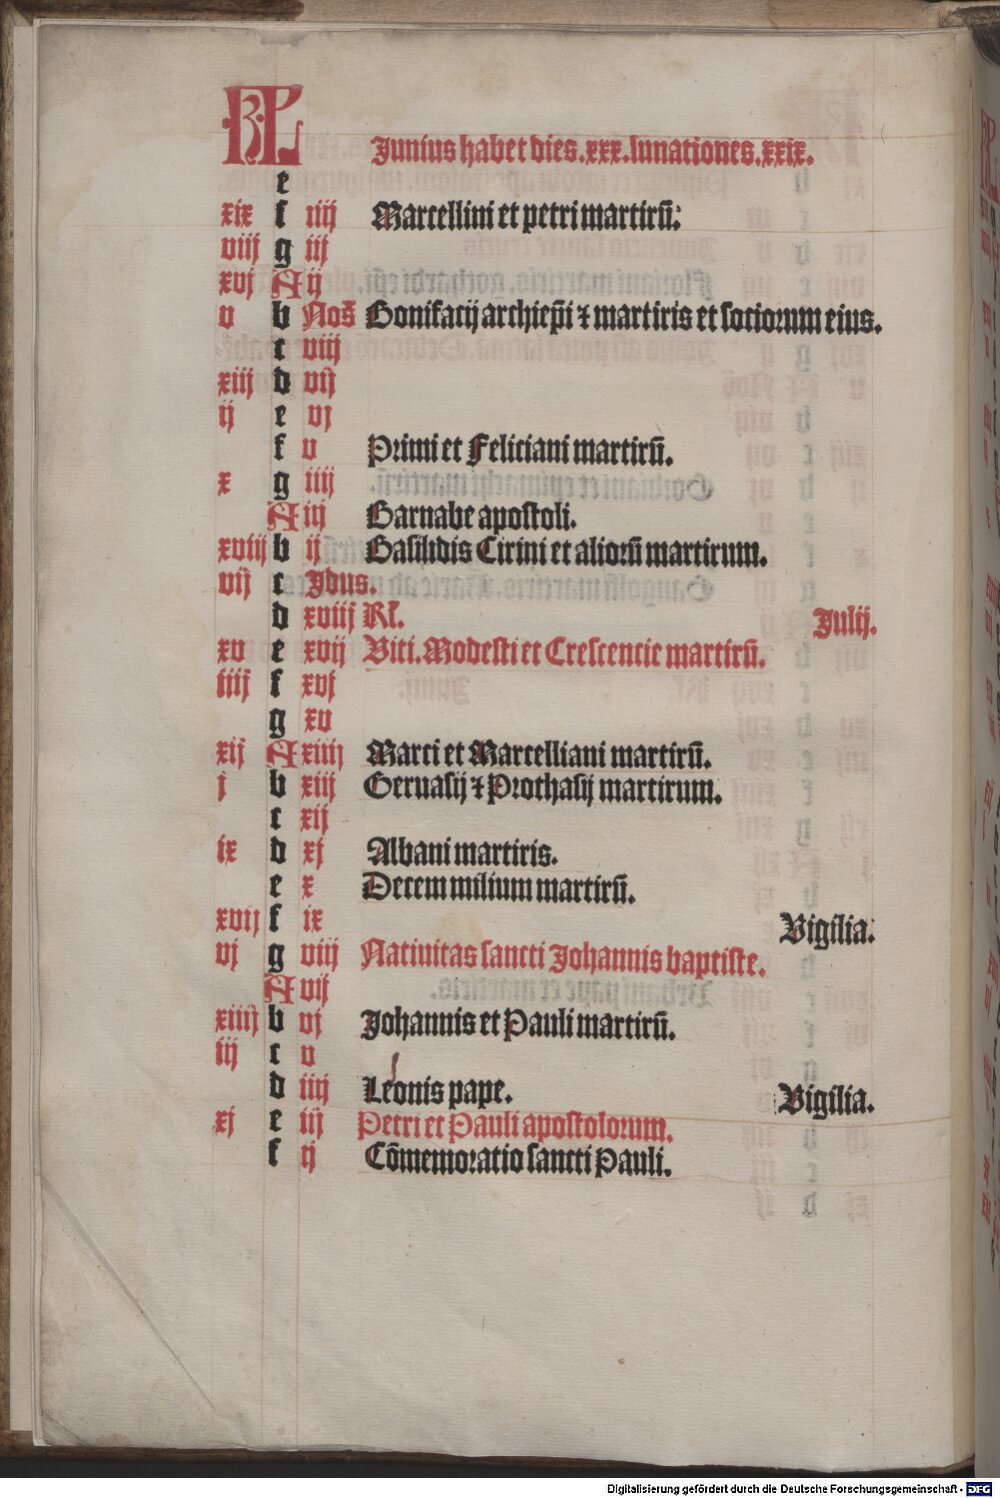 KL Junius habet dies .xxx. lunationes .xxix.
e
xix f iiij Marcellini et petri martirū.
viij g iij
xvj A ij
v b Noš Bonifacij archiep̄i ⁊ martiris et sociorum eius.
c viij
xiij d vij
ij e vj
f v Primi et Feliciani martirū.
x g iiij
A iij Barnabe apostoli.
xviij b ij Basilidis Cirini et alioru̅ martirum.
vij c Jdus.
d xviij Kł. Julij.
xv e xvij Viti. Modesti et Crescencie martirū.
iiij f xvj
g xv
xij A xiiij Marci et Marcelliani martirū.
j b xiij Geruasij ⁊ Prothasij martirum.
c xij
ix d xj Albani martiris.
e x Decem milium martirū.
xvij f ix Vigilia.
vj g viij Natiuitas sancti Johannis baptiste.
A vij
xiiij b vj Johannis et Pauli martirū.
iij c v
d iiij Leonis pape. Vigilia.
xj e iij Petri et Pauli apostolorum.
f ij Cōmemoratio sancti Pauli.
Digitalisierung gefördert durch die Deutsche Forschungsgemeinschaft - DFG